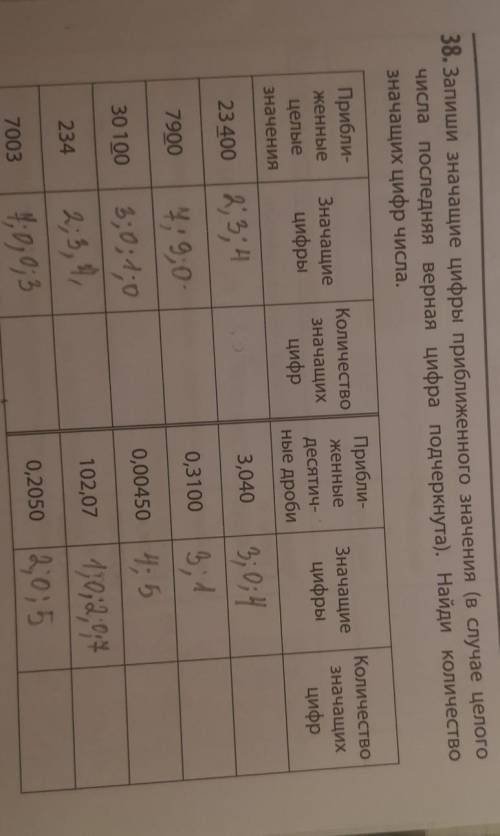 38. Запиши значащие цифры приближенного значения (в случае целого
числа последняя верная цифра подчеркнута). Найди количество
значащих цифр числа.
Прибли-
женные
целые
значения
Значащие
цифры
Количество
значащих
цифр
Прибли-
женные
десятич-
ные дроби
Значащие
цифры
Количество
значащих
цифр
23400 2; 3; 4 3,040 3; 0; 4
7900 7; 9; 0. 0,3100 3; 1
30100 3; 0; 1; 0 0,00450 4; 5
234 2; 3, 4, 102,07 1; 0; 2; 0; 7
7003 7; 0; 0; 3 0,2050 2; 0; 5